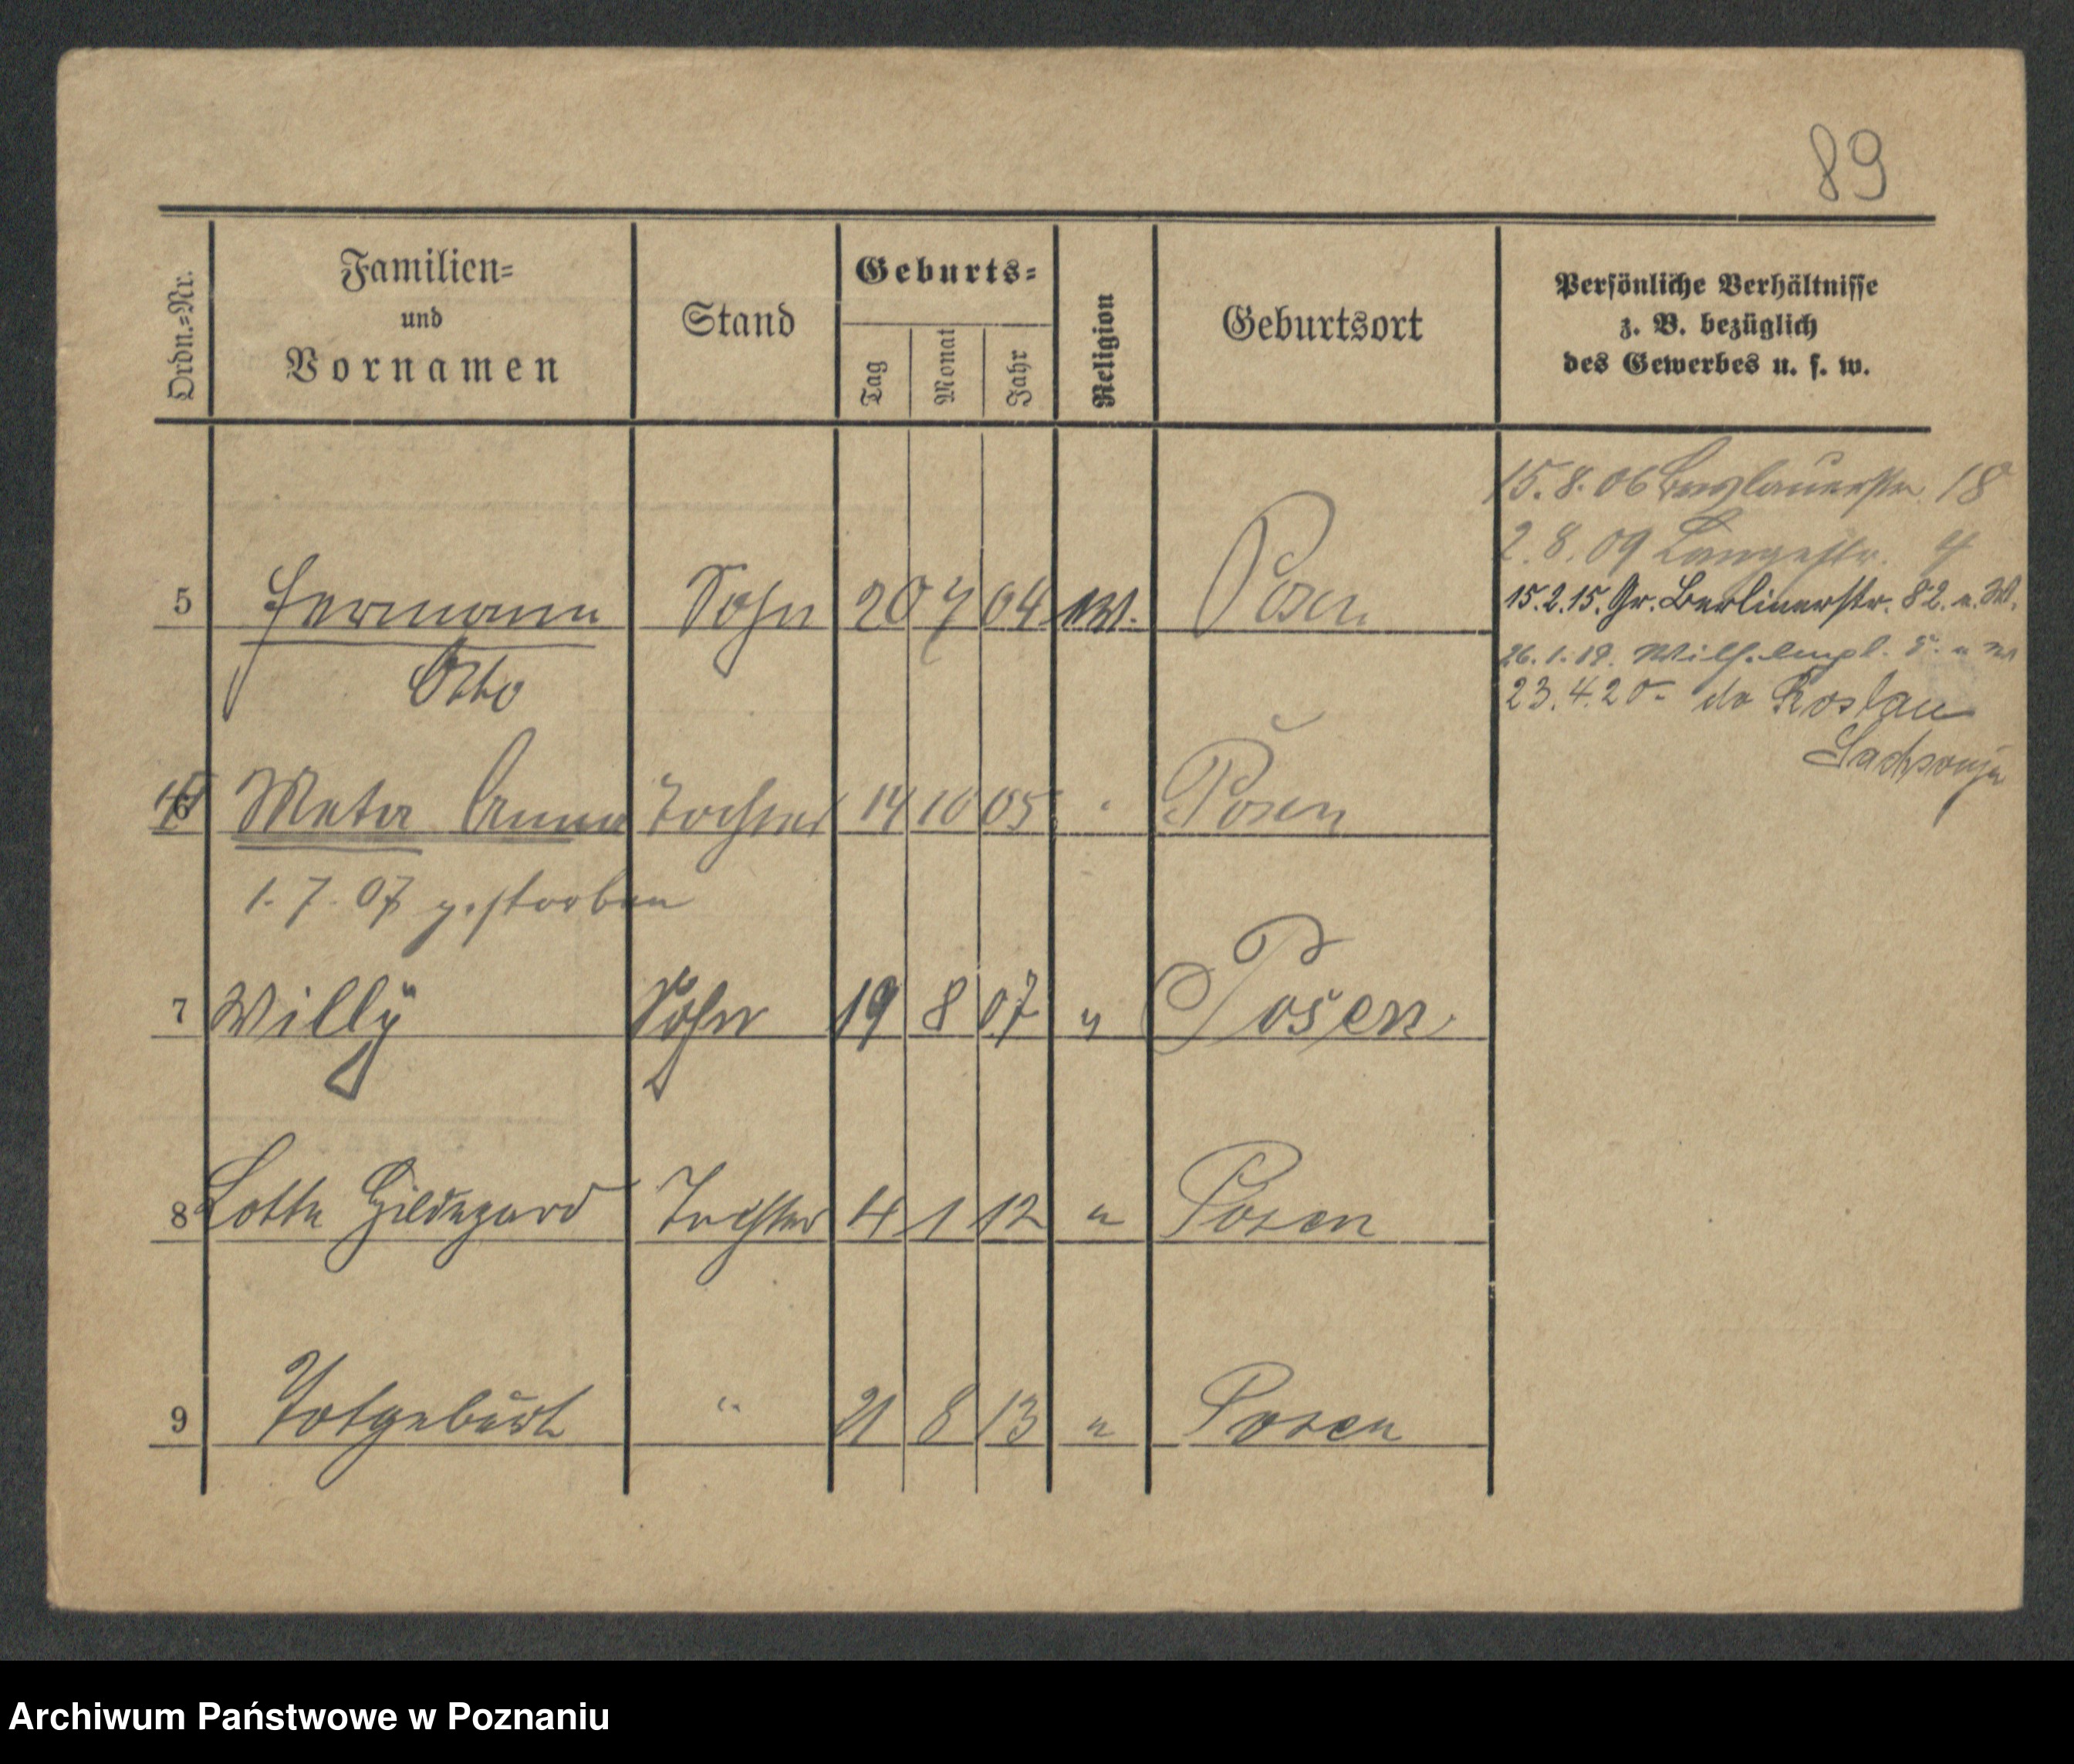 89
Ordn.=Nr.
Familien=
und
Vornamen
Stand
Geburts=
Tag
Monat
Jahr
Religion
Geburtsort
Persönliche Verhältnisse
z. B. bezüglich
des Gewerbes u. s. w.
15.8.06 18
2.8.09 Langestr. 4
5 Hermann Sohn 20 7 04 Posen
Otto
15.2.15. Gr. Berlinerstr. 82. u. W.
26.1.19. Wilhelmpl.
23.4.20 do Roslau
6 Meta Anna Tochter 14 10 05 Posen
1.7.07 gestorben
7 Willy Sohn 19 8 07 " Posen
8 Lotte Hildegard Tochter 4 1 12 " Posen
9 Totgeburt " 21 8 13 " Posen
Archiwum Państwowe w Poznaniu